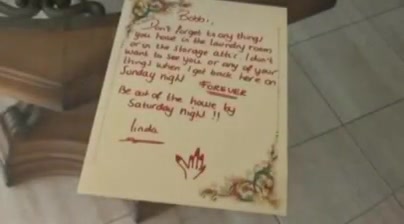 Bobbi,
Don't forget to any things
you have in the laundry room
or in the storage attic. I don't
want to see you or any of your
things when I get back here on
Sunday night FOREVER
Be out of the house by
Saturday night !!
Linda